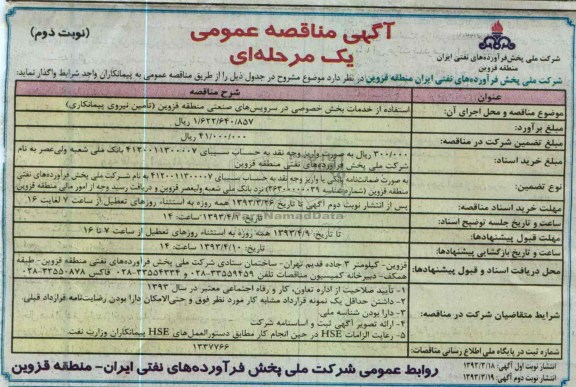 آگهی مناقصه عمومی
یک مرحله‌ای
(نوبت دوم)
شرکت ملی پخش فرآورده‌های نفتی ایران
منطقه قزوین
شرکت ملی پخش فرآورده‌های نفتی ایران منطقه قزوین در نظر دارد موضوع مشروح در جدول ذیل را از طریق مناقصه عمومی به پیمانکاران واجد شرایط واگذار نماید:
عنوان
شرح مناقصه
موضوع مناقصه و محل اجرای آن:
استفاده از خدمات بخش خصوصی در سرویس‌های صنعتی منطقه قزوین (تأمین نیروی پیمانکاری)
مبلغ برآورد:
۱/۶۲۲/۶۴۰/۸۵۷ ریال
مبلغ تضمین شرکت در مناقصه:
۴۱/۰۰۰/۰۰۰ ریال
مبلغ خرید اسناد:
۳۰۰/۰۰۰ ریال به صورت واریز وجه نقد به حساب سیبای ۴۱۲۰۰۱۱۳۰۰۰۰۷ بانک ملی شعبه ولی‌عصر به نام
شرکت ملی پخش فرآورده‌های نفتی منطقه قزوین
نوع تضمین:
به صورت ضمانتنامه بانکی یا واریز وجه نقد به حساب سیبای ۴۱۲۰۰۱۱۳۰۰۰۰۷ به نام شرکت ملی پخش فرآورده‌های نفتی
منطقه قزوین (شماره شناسه ۳۶۳۰۰۰۰۰۰۳۹) نزد بانک ملی شعبه ولیعصر قزوین و دریافت رسید وجه از امور مالی منطقه قزوین
مهلت خرید اسناد مناقصه:
پس از انتشار نوبت دوم آگهی تا تاریخ ۱۳۹۳/۳/۲۶ همه روزه به استثناء روزهای تعطیل از ساعت ۷ لغایت ۱۶
ساعت و تاریخ جلسه توضیح اسناد:
تاریخ: ۱۳۹۳/۴/۲ ساعت: ۱۴
مهلت قبول پیشنهادها:
تا تاریخ: ۱۳۹۳/۴/۹ همه روزه به استثناء روزهای تعطیل از ساعت ۷ تا ۱۶
ساعت و تاریخ بازگشایی پیشنهادها:
تاریخ: ۱۳۹۳/۴/۱۰ ساعت: ۱۴
محل دریافت اسناد و قبول پیشنهادها:
قزوین- کیلومتر ۳ جاده قدیم تهران- ساختمان ستادی شرکت ملی پخش فرآورده‌های نفتی منطقه قزوین- طبقه
همکف- دبیرخانه کمیسیون مناقصات تلفن ۳۳۵۵۹۴۵۹-۰۲۸ و ۳۳۵۵۴۳۳۴-۰۲۸ فاکس ۳۲۵۵۰۸۷۸-۰۲۸
شرایط متقاضیان شرکت در مناقصه:
۱- تأیید صلاحیت از اداره تعاون، کار و رفاه اجتماعی معتبر در سال ۱۳۹۳
۲- داشتن حداقل یک نمونه قرارداد مشابه کار مورد نظر فوق و حتی‌الامکان دارا بودن رضایت‌نامه قرارداد قبلی.
۳- دارا بودن شناسه ملی.
۴- ارائه تصویر آگهی ثبت و اساسنامه شرکت
۵- رعایت الزامات HSE در حین انجام کار مطابق دستورالعمل‌های HSE پیمانکاران وزارت نفت.
شماره ثبت در پایگاه ملی اطلاع رسانی مناقصات:
۱۳۳۷۷۶۶
انتشار نوبت اول آگهی: ۱۳۹۳/۳/۱۸
انتشار نوبت دوم آگهی: ۱۳۹۳/۳/۱۹
روابط عمومی شرکت ملی پخش فرآورده‌های نفتی ایران- منطقه قزوین
NamadData